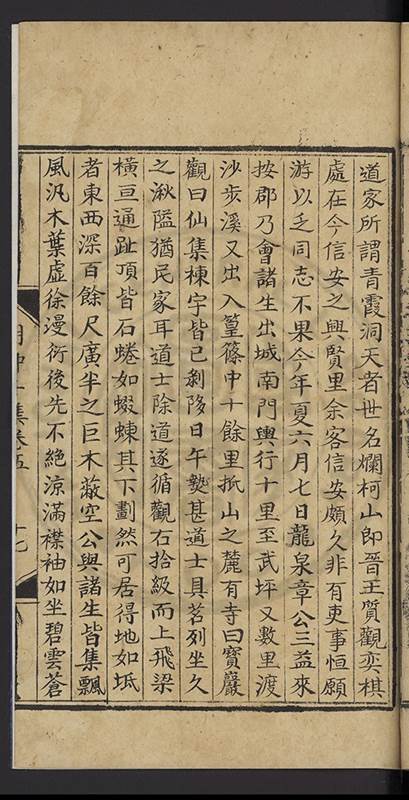 道家所謂青霞洞天者世名爛柯山即晉王質觀弈棋
處在今信安之興賢里余客信安頗久非有吏事恒願
游以乏同志不果今年夏六月七日龍泉章公三益來
按郡乃會諸生出城南門輿行十里至武坪又數里渡
沙步溪又出入篁篠中十餘里抵山之麓有寺曰寶巖
觀曰仙集棟宇皆已剝陊日午𤍠甚道士具茗列坐久
之湫隘猶民家耳道士除道遂循觀右拾級而上飛梁
橫亘通趾頂皆石蜷如蝃蝀其下劃然可居得地如坻
者東西深百餘尺廣半之巨木蔽空公與諸生皆集飄
風汎木葉虛徐漫衍後先不絕涼滿襟袖如坐碧雲蒼